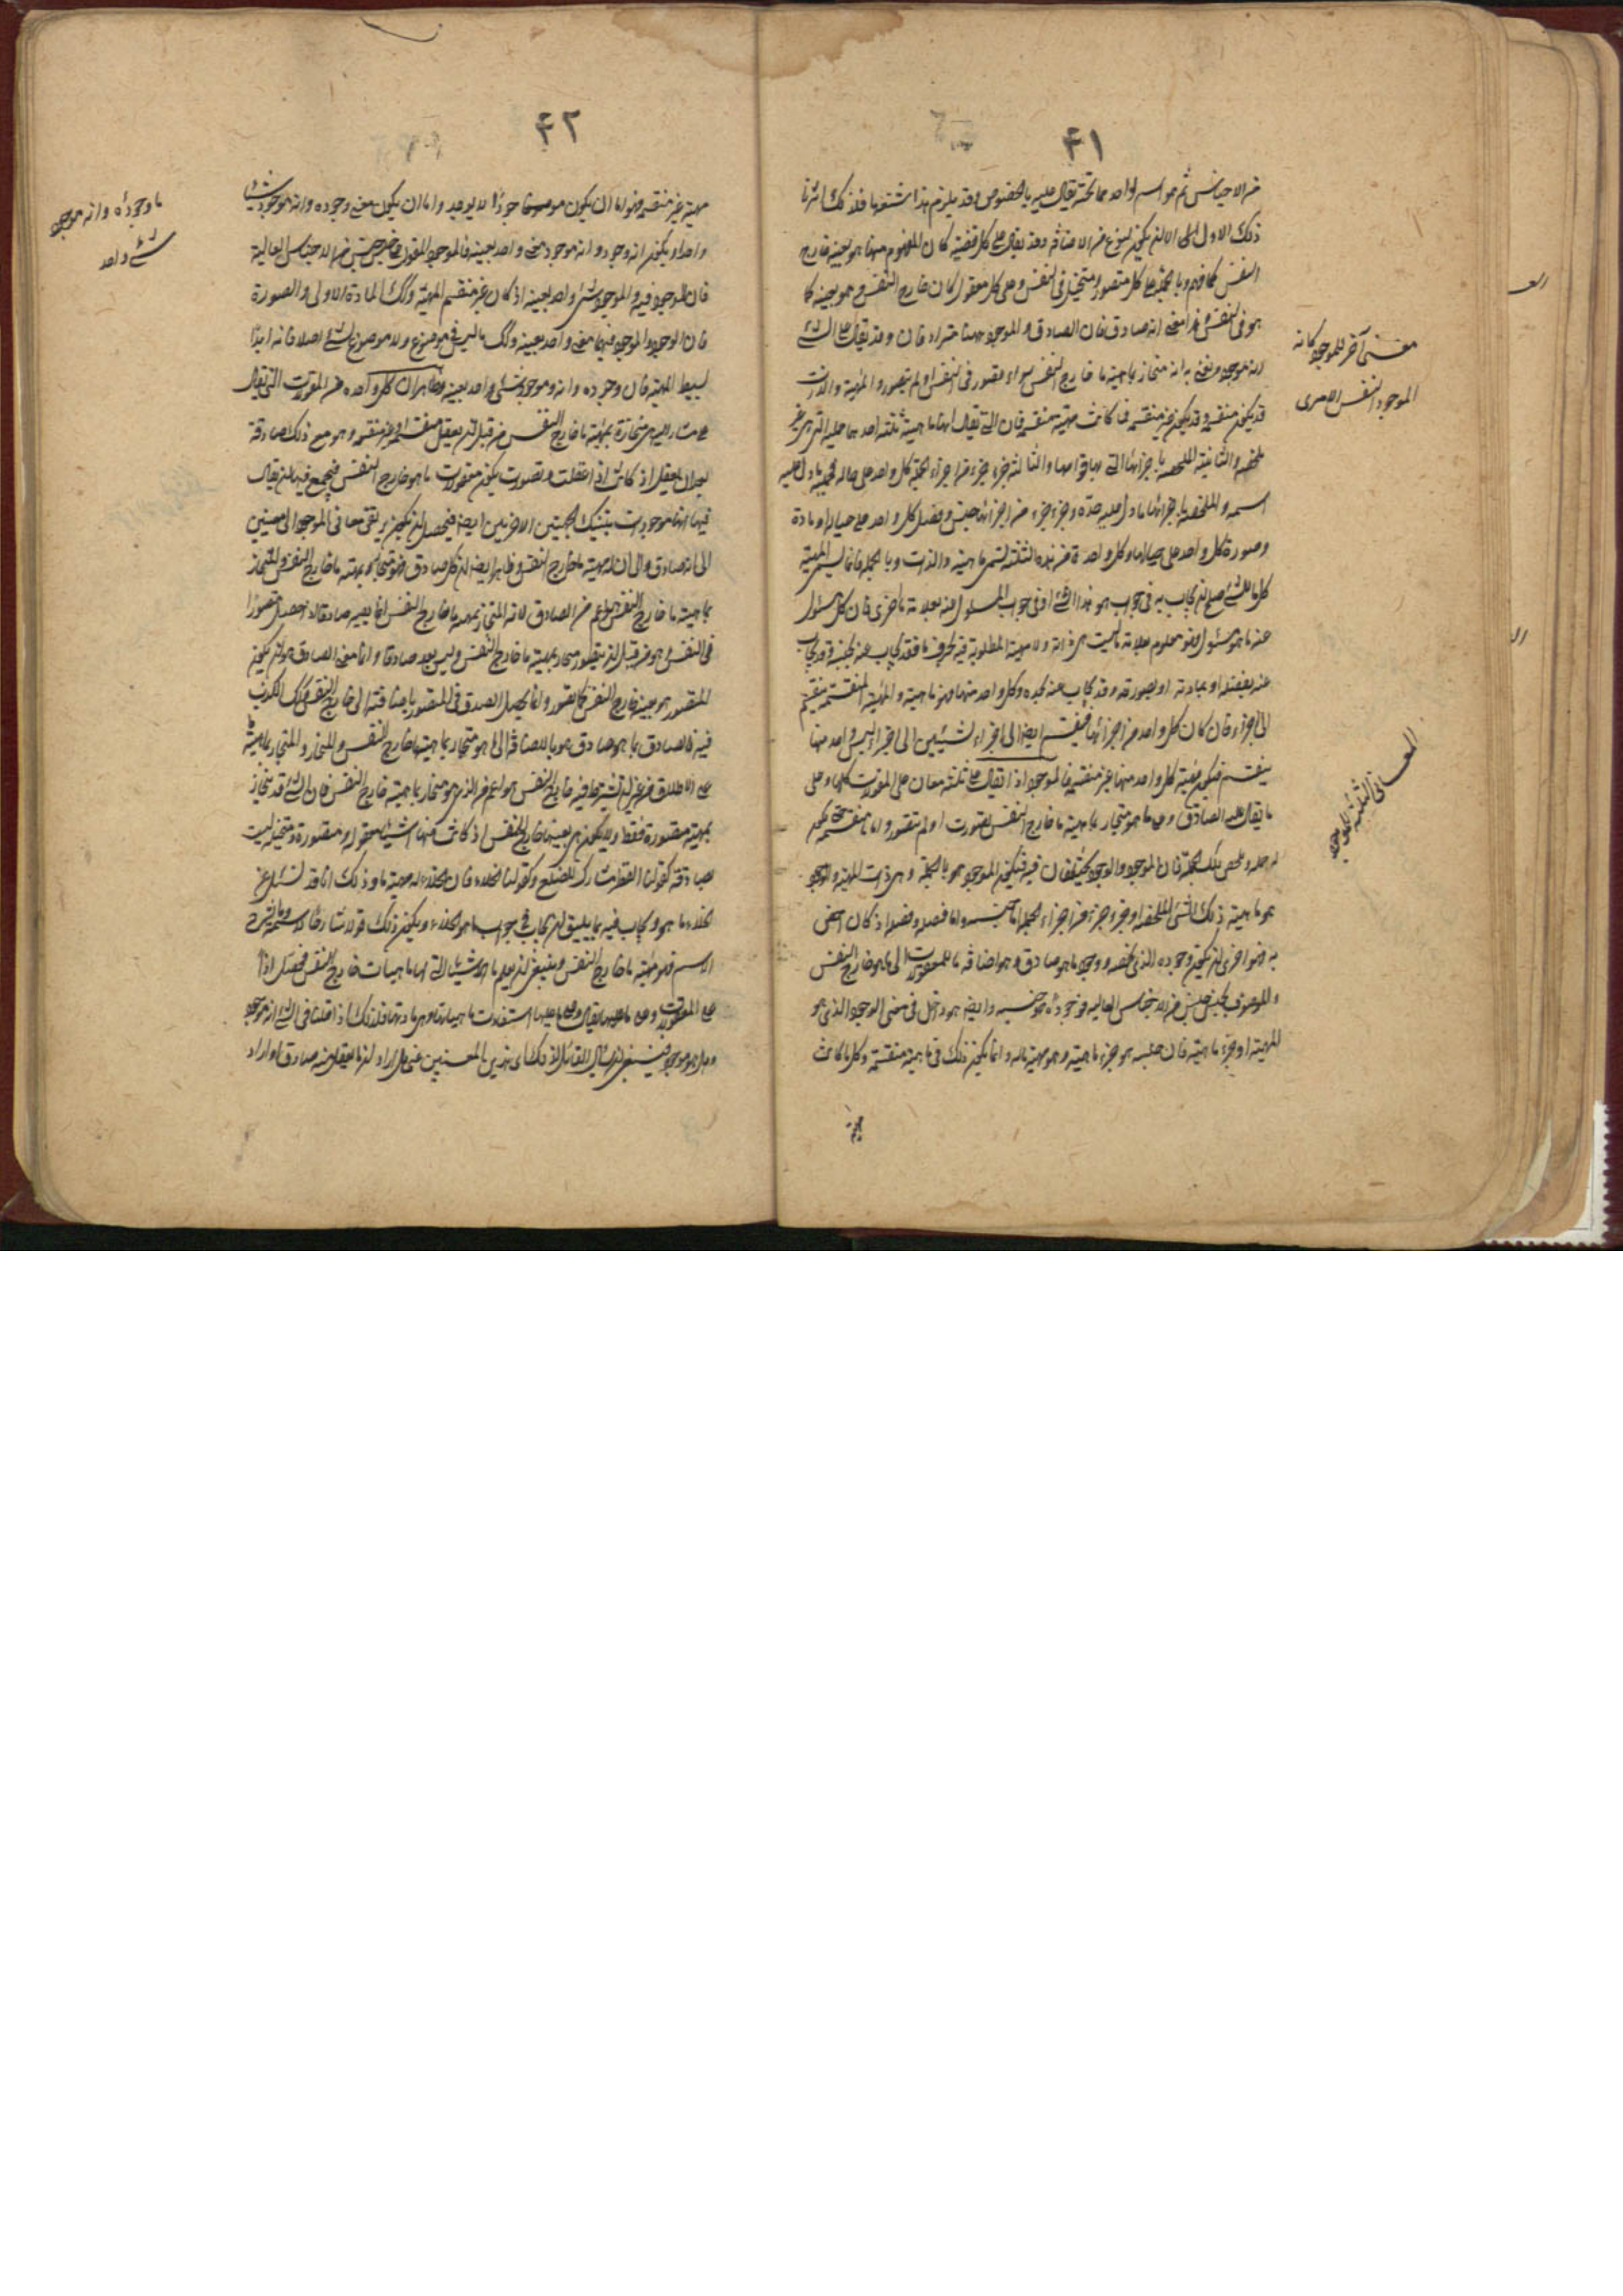 ۴۱
من الاجناس ثم هو اسم لواحد مما تحته يقال عليه بالخصوص وقد يلزم هذا
ذلك الاول الى الا ان يكون لنوع من الاضافة وقد يقال على كل قضية كان المفهوم منها هو بعينه خارج
النفس كما فهم وبالجملة على كل متصور ومتخيل في النفس وعلى كل معقول كان خارج النفس وهو بعينه كما
هو في النفس وهذا معنى انه صادق فان الصادق والموجود مترادفان وقد يقال على الشيء
انه موجود ويعنى به انه منحاز بماهية ما خارج النفس سواء تصور في النفس او لم يتصور والماهية والذات
قد يكون منقسمة وقد يكون غير منقسمة فما كانت مهية منقسمة فان التي يقال انها ماهيته ثلثة احدها جملته التي هي غير
ملخصة والثانية الملخصة باجزائها التي بها قوامها والثالثة جزء جزء من اجزاء الجملة كل واحد على حياله فجملته ما دل عليه
اسمه والملخصة باجزائها ما دل عليه حده وجزء جزء من اجزائها جنس وفصل كل واحد على حياله او مادة
وصورة كل واحد على حيالها وكل واحدة من هذه الثلثة تسمى ماهية والذات وبالجملة فانما يسمى الماهية
كل ما للشيء صح ان يجاب به في جواب ما هو هذا الشيء او في جواب المسئول عنه بعلامة ما اخرى فان كل مسئول
عنه ما هو مسئول فهو معلوم بعلامة ليست هي ذاته ولا ماهيته المطلوبة فيه بحرف ما فقد يجاب عنه بجنسه وقد يجاب
عنه بفصله او بمادته او بصورته وقد يجاب عنه بحده وكل واحد منها فهو ماهيته والمهية المنقسمة منقسم
الى اجزاء فان كان كل واحد من اجزائها منقسم ايضا الى اجزاء لشيئين الى اجزاء ليس واحد منها
ينقسم فيكون مهية كل واحد منها غير منقسمة فالموجود اذا يقال على ثلثة معان على المقولات كلها وعلى
ما يقال عليه الصادق وعلى ما هو منحاز بماهية ما خارج النفس تصورت او لم تتصور واما منقسم
له جملة وملخص تلك الجملة فان الموجود والوجود يختلفان فيه فيكون الموجود هو بالجملة وهي ذات المهية والوجود
هو ماهية ذلك الشيء الملخصة او جزء جزء من اجزاء الجملة اما جنسه واما فصله وفصله اذ كان اخص
به فهو احرى ان يكون وجوده الذي يخصه ووجود ما هو صادق فهو اضافة ما للمعقولات الى ما هو خارج النفس
والموصوف بجنس جنس من الاجناس العالية فوجوده هو جنسه وايضا هو داخل في معنى الوجود الذي هو
المهية او جزء ماهية فان جنسه هو جزء ماهيته وهو مهية ما له وانما يكون ذلك في ما مهيته منقسمة وكل ما كانت
معنى آخر للموجود كانه
الموجود النفس الامرى
المعانى الثلثة للموجود
۴۲
مهيته غير منقسمة فهو اما ان يكون موجودا لا يوجد واما ان يكون معنى وجوده وانه موجود شيئا
واحدا ويكون انه وجود وانه موجود معنى واحد بعينه فالموجود المقول على جنس جنس من الاجناس العالية
فان الوجود فيه والموجود شيء واحد بعينه اذ كان غير منقسم المهية وكذلك المادة الاولى والصورة
فان الوجود والموجود فيهما معنى واحد بعينه وكذلك ما ليس في موضوع ولا موضوع لشيء اصلا فانه ابدا
بسيط المهية فان وجوده وانه موجود شيء واحد بعينه وظاهر ان كل واحدة من المقولات التي يقال
على مشار اليه هي منحازة بمهية ما خارج النفس من قبل ان يعقل منقسمة او غير منقسمة وهو مع ذلك صادقة
بعد ان يعقل اذ كانت اذا عقلت وتصورت يكون معقولات ما هو خارج النفس فيجتمع فيها ان يقال
فيها انها موجودات بتينك الجهتين الاخريين ايضا فيحصل ان يكون يرتقى معانى الموجود الى معنيين
الى انه صادق والى ان له مهية ما خارج النفس وظاهر ايضا ان كل صادق فهو منحاز بمهية ما خارج النفس والمنحاز
بماهية ما خارج النفس هو اعم من الصادق لان المنحاز بمهية ما خارج النفس انما يصير صادقا اذا حصل متصورا
في النفس وهو من قبل ان يتصور منحاز بمهية ما خارج النفس وليس يعد صادقا وانما معنى الصادق هو ان يكون
المتصور هو بعينه خارج النفس كما تصور وانما يحصل الصدق في المتصور باضافته الى خارج النفس وكذلك الكذب
فيه فالصادق بما هو صادق هو بالاضافة الى ما هو منحاز بماهية ما خارج النفس والمنحاز بماهية
على الاطلاق من غير ان يشترط فيه خارج النفس هو اعم من الذي هو منحاز بماهية خارج النفس فان الشيء قد ينحاز
بمهيته متصورة فقط ولا يكون هي بعينها خارج النفس اذ كانت منها اشياء معقولة او متصورة ومتخيلة ليست
صادقة كقولنا القطر مشارك للضلع وكقولنا الخلاء فان الخلاء له مهية ما وذلك انا قد نسئل عن
الخلاء ما هو ويجاب فيه بما يليق ان يجاب في جواب ما هو الخلاء ويكون ذلك قولا شارحا لاسمه وما يشرح
الاسم فهو مهية ما خارج النفس وينبغى ان يعلم ما الاشياء التي لها ماهيات خارج النفس فيحصل اذا
على المقولات وعلى ما عليها يقال وعلى ما منها استفادت ماهياتها وهي مادتها فلذلك اذا قلنا في الشيء انه موجود
وهل هو موجود فينبغى ان يسأل القائل لذلك اى هذين المعنيين عنى هل اراد ان ما يعقل منه صادق او اراد
ما وجوده وانه موجود
شيء واحد